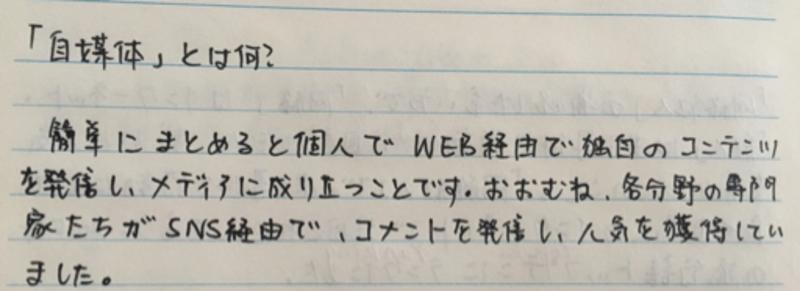 「自媒体」とは何？
簡単にまとめると個人でWEB経由で独自のコンテンツ
を発信し、メディアに成り立つことです。おおむね、各分野の専門
家たちがSNS経由で、コメントを発信し、人気を獲得してい
ました。